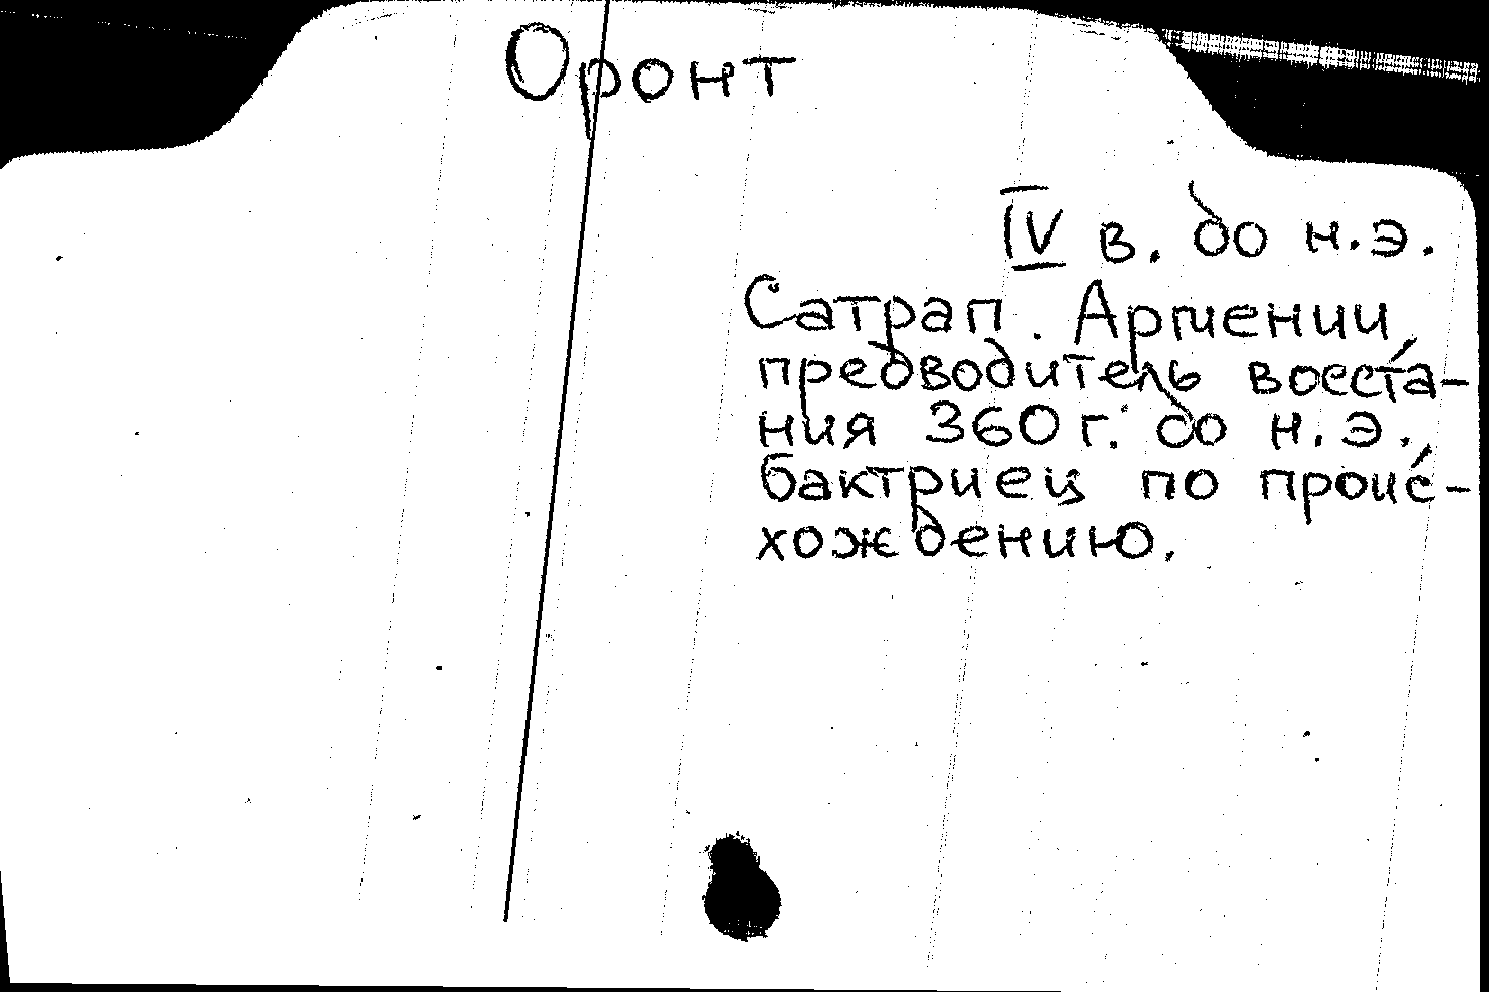 Оронт
IV в. до н.э.
Сатрап. Армении,
предводитель восста-
ния 360 г. до н.э.,
бактриец по проис-
хождению.